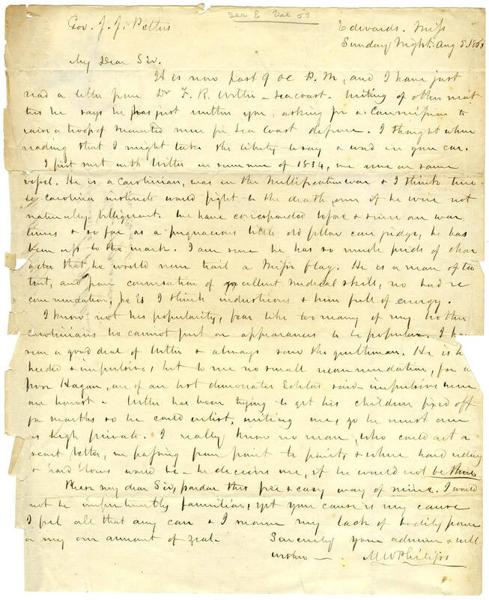 Ser E Vol 53
Gov. J. J. Pettus
Edwards. Miss
Sunday Night. Aug
My Dear Sir.
It is now past 9 oc P.M, and I have just
read a letter from Dr F. R. Witter - sea coast. Writing of other mat
ters he says he has just written you, asking for a Commission to
raise a troop of mounted men for Sea Coast defense. I thought when
reading that I might take the liberty to say a word in your ear.
I first met with Witter in summer of 1834, we were in same
vessel. He is a Carolinian, was in the Nullification war & I think
Carolina instincts would fight to the death, even if he were not
naturally belligerent. We have corresponded before & since our war
times & so far as a pugnacious little old fellow can judge, he has
been up to the mark. I am sure he has so much pride of char
acter that he would never trail a Miss flag. He is a man of
and from conversation of excellent medical skill, no bad re
commendation, he is I think industrious & him full of energy.
I know not his popularity, fear like too many of my brother
Carolinians he cannot put on appearances to be popular. I
seen a good deal of Witter & always saw the gentleman. He is
headed & impulsive, but to me no small recommendation, for as
poor Hagan, one of our hot democratic Editors said - impulsive men
are honest - Witter has been trying to get his children fixed off
for months so he could enlist, writing me, go he must even
as high private. I really know no man, who could act a
scout better, in passing from point to point, & where hard riding
& hard blows would be - he deceives me, if he would not be there.
Please my dear Sir, pardon this free & easy way of mine. I would
not be impertinently familiar, yet your cause is my cause
I feel all that any can & I mourn my lack of bodily power
or my own amount of zeal.
Sincerely your admirer & well
wisher - M W Philips